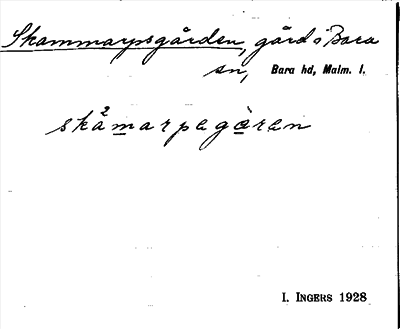 Skammarpsgården, gård i Bara
sn, Bara hd, Malm. l.
skå²marpagåren
I. INGERS 1928